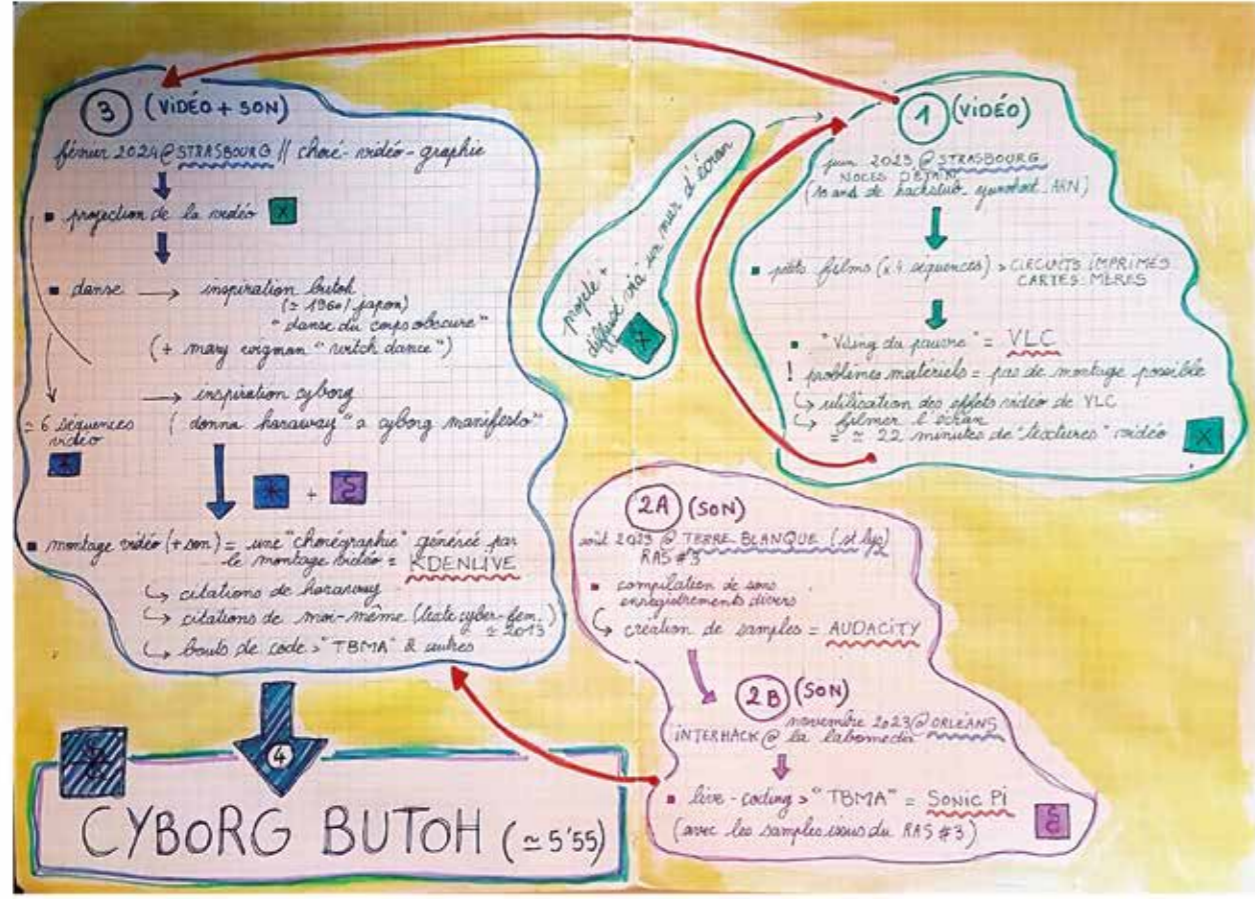 3 (VIDÉO + SON)
février 2024@STRASBOURG // choré-vidéo-graphie
▪ projection de la vidéo X
▪ danse → inspiration butoh
(≃ 1960/japon)
"danse du corps obscure"
(+ mary wigman "witch dance")
→ inspiration cyborg
(donna haraway "a cyborg manifesto"
≃ 6 séquences
vidéo
+
▪ montage vidéo (+son) = une "chorégraphie" générée par
le montage vidéo = KDENLIVE
↳ citations de haraway
↳ citations de moi-même (texte cyber-fem.
≃ 2013)
↳ bouts de code > "TBMA" & autres
4
CYBORG BUTOH (≃ 5'55)
projeté +
diffusé via un mur d'écran
X
1 (VIDÉO)
juin 2023 @ STRASBOURG
NOCES D'ÉTAIN
(10 ans de hackstub ARN)
▪ petits films (x 4 séquences) > CIRCUITS IMPRIMÉS
CARTES MÈRES
▪ "VJing du pauvre" = VLC
! problèmes matériels = pas de montage possible
↳ utilisation des effets vidéo de VLC
↳ filmer l'écran
= ≃ 22 minutes de "textures" vidéo X
2A (SON)
août 2023 @ TERRE BLANQUE
RAS #3
▪ compilation de sons
enregistrements divers
↳ création de samples = AUDACITY
2B (SON)
novembre 2023@ORLÉANS
INTERHACK @ la labomedia
▪ live-coding > "TBMA" = SONIC PI
(avec les samples issus du RAS #3)